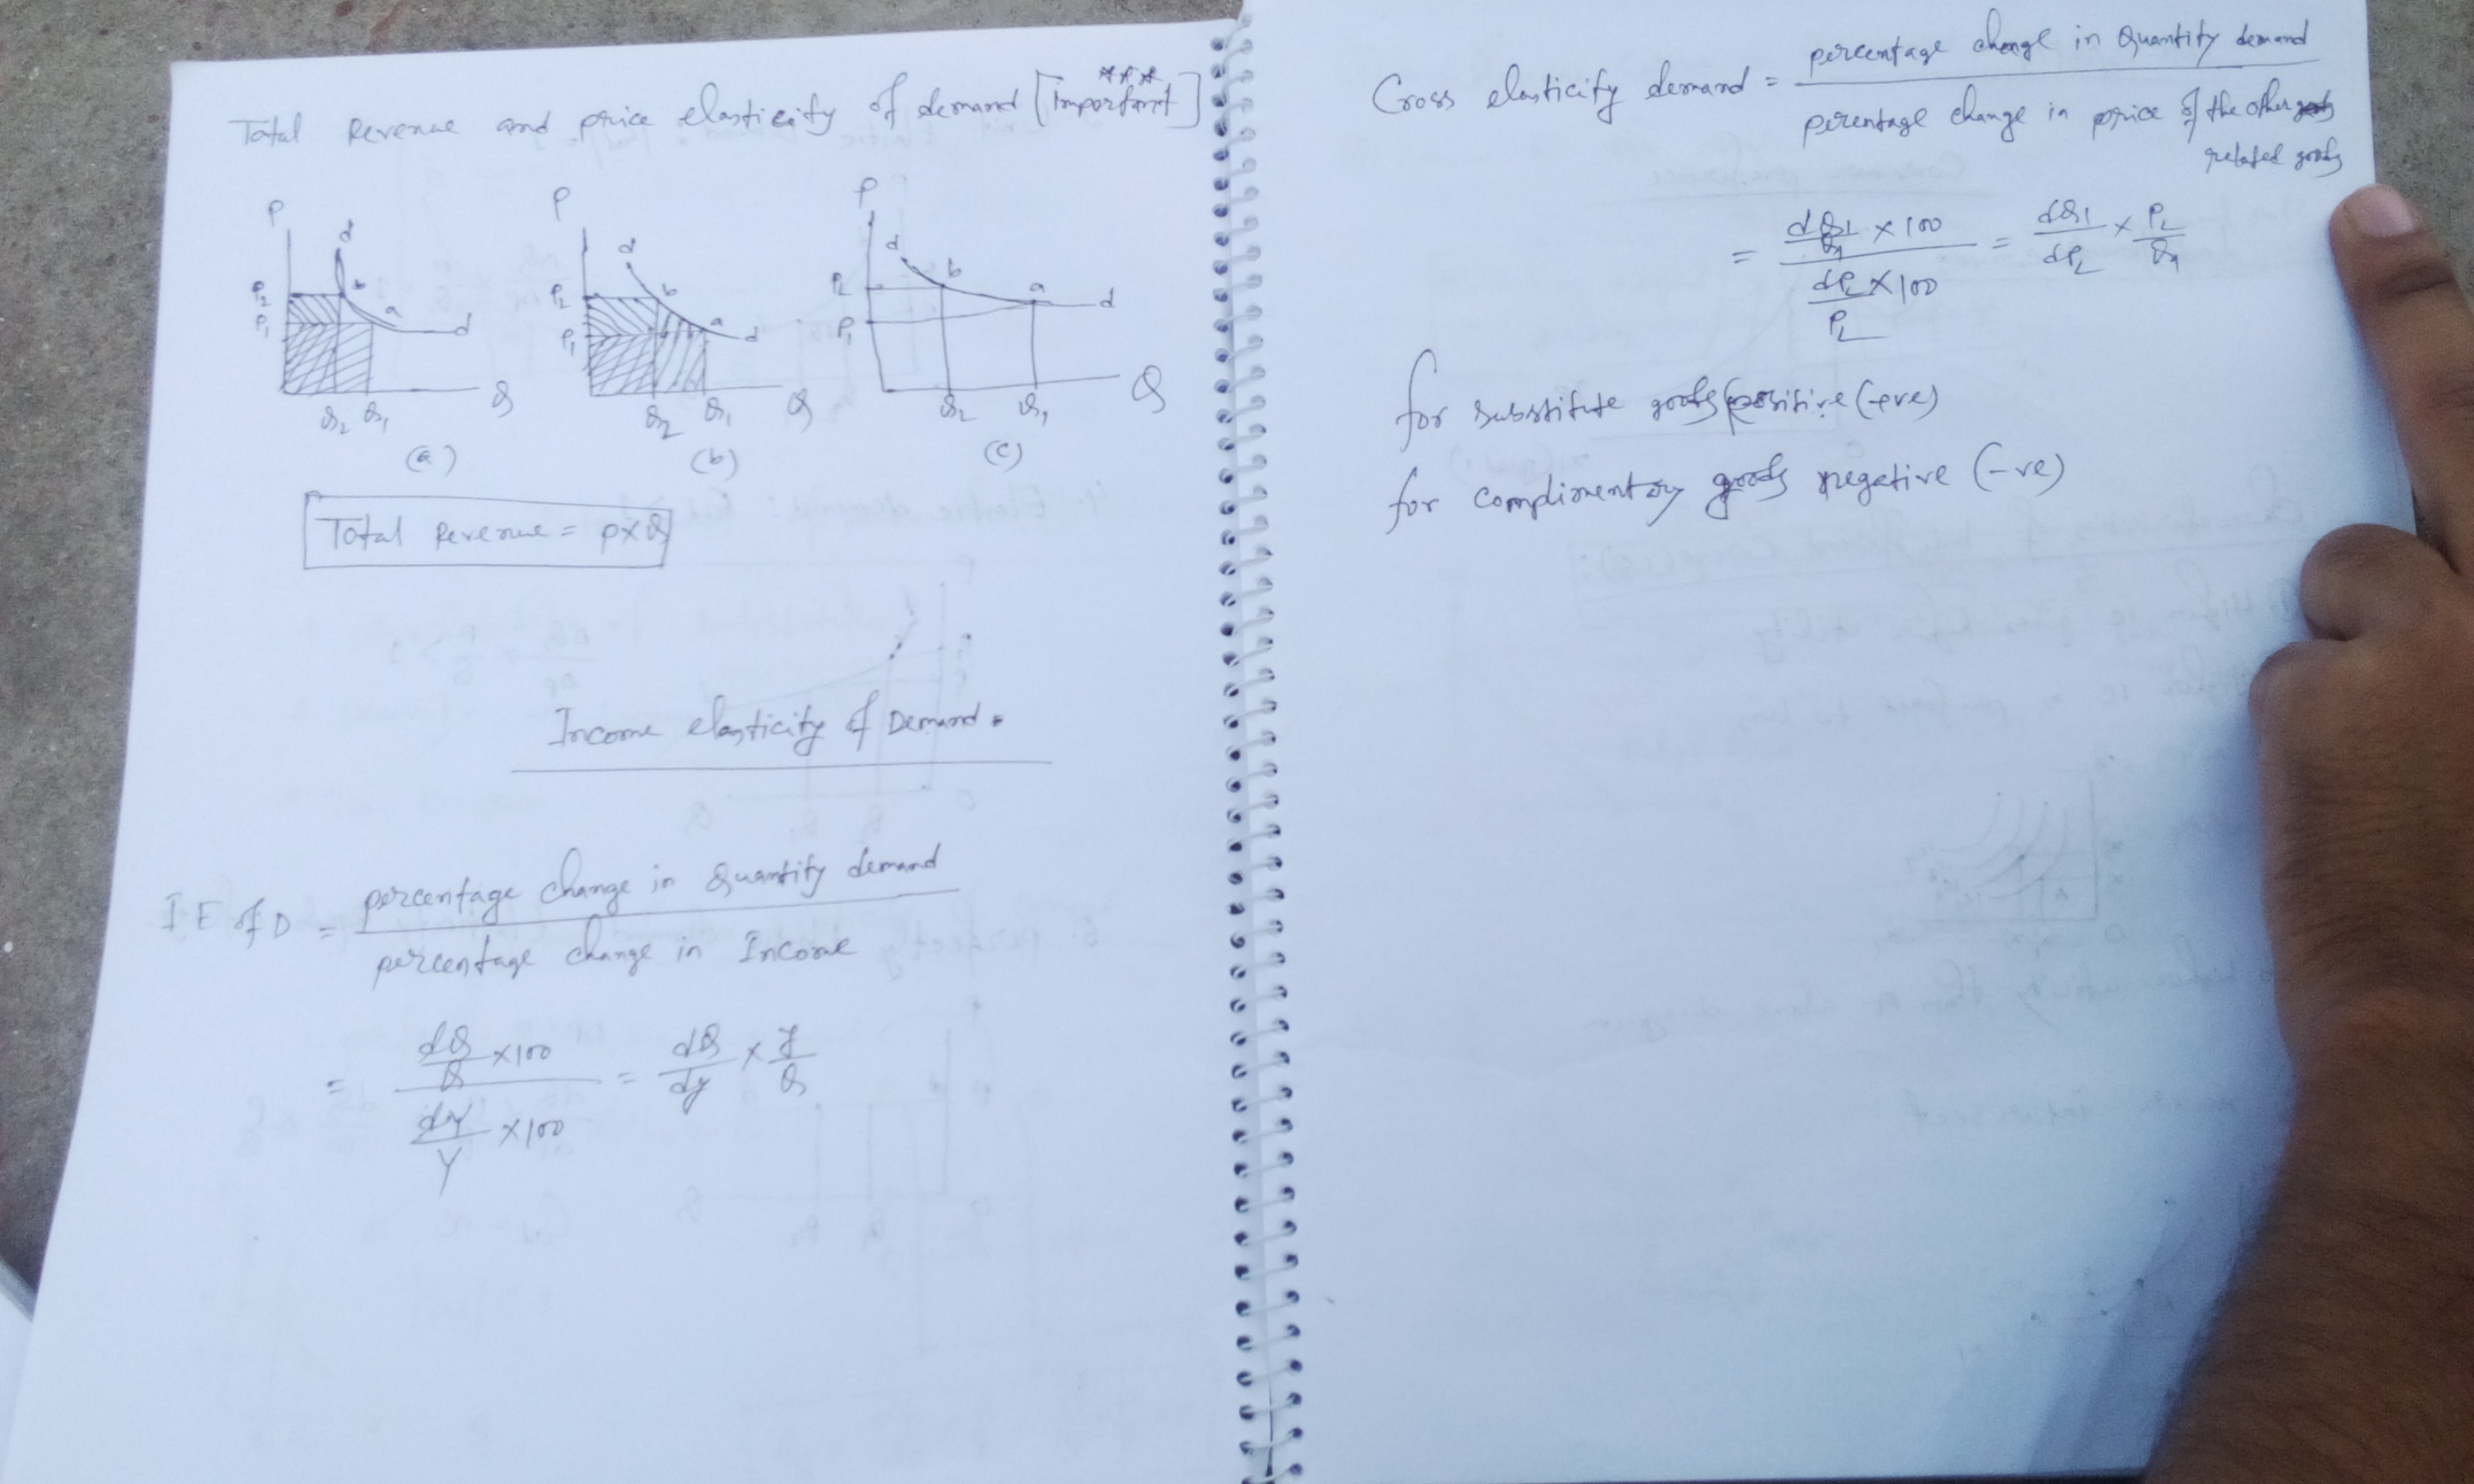 Total Revenue and price elasticity of demand [Important]
***
P P P
d d d
P2 b P2 b P2 b a
P1 a d P1 a d P1 d
Q2 Q1 Q Q2 Q1 Q Q2 Q1 Q
(a) (b) (c)
Total Revenue = P×Q
Income elasticity of Demand.
I E of D = percentage change in Quantity demand
percentage change in Income
= dQ/Q ×100 = dQ/dy × y/Q
dY/Y ×100
Cross elasticity demand = percentage change in Quantity demand
percentage change in price of the other
related goods
= dQ1/Q1 ×100 = dQ1/dP2 × P2/Q1
dP2/P2 ×100
for substitute goods positive (+ve)
for complimentary goods negative (-ve)